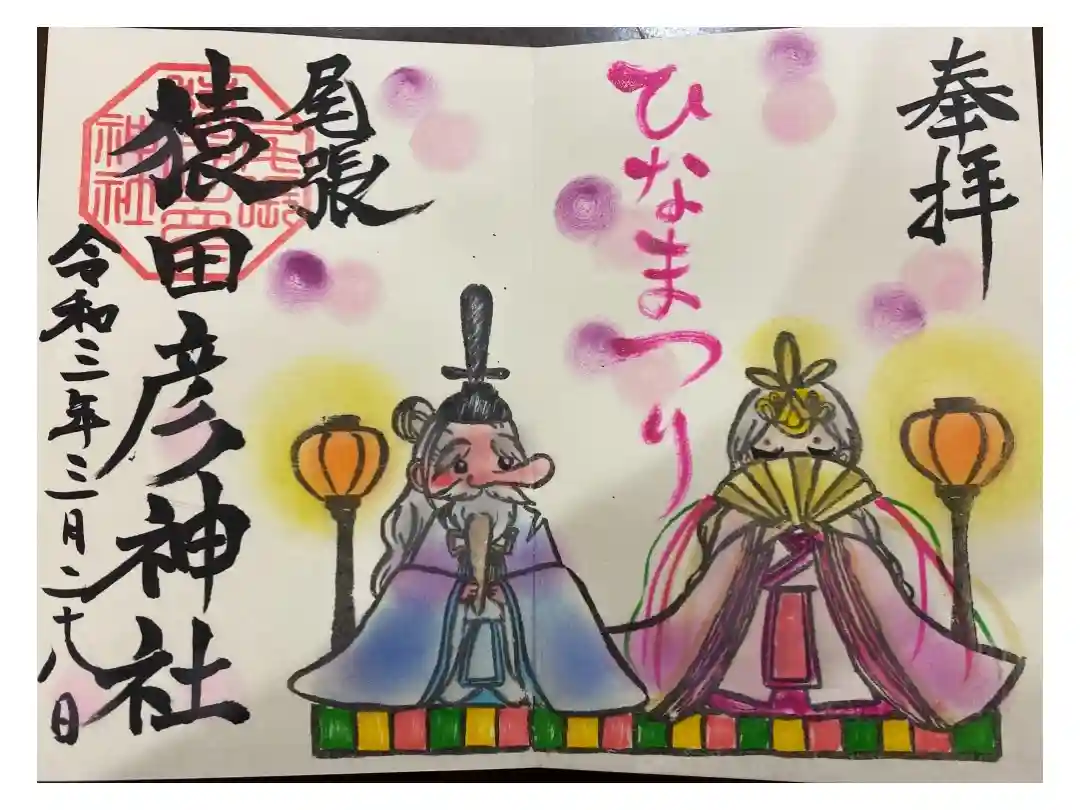 奉拝
ひなまつり
尾張
猿田彦神社
令和三年三月二十八日